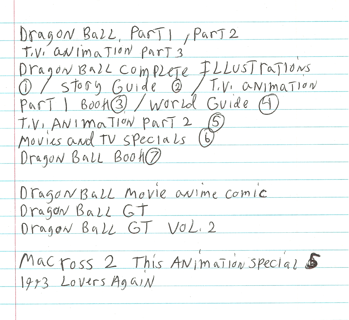 Dragon Ball, Part 1, Part 2
T.V. Animation Part 3
Dragon Ball Complete Illustrations
① / Story Guide ② / T.V. Animation
Part 1 Book ③ / World Guide ④
T.V. Animation Part 2 ⑤
Movies and TV Specials ⑥
Dragon Ball Book ⑦
Dragon Ball Movie anime comic
Dragon Ball GT
Dragon Ball GT Vol. 2
Macross 2 This Animation Special 5
1993 Lovers Again